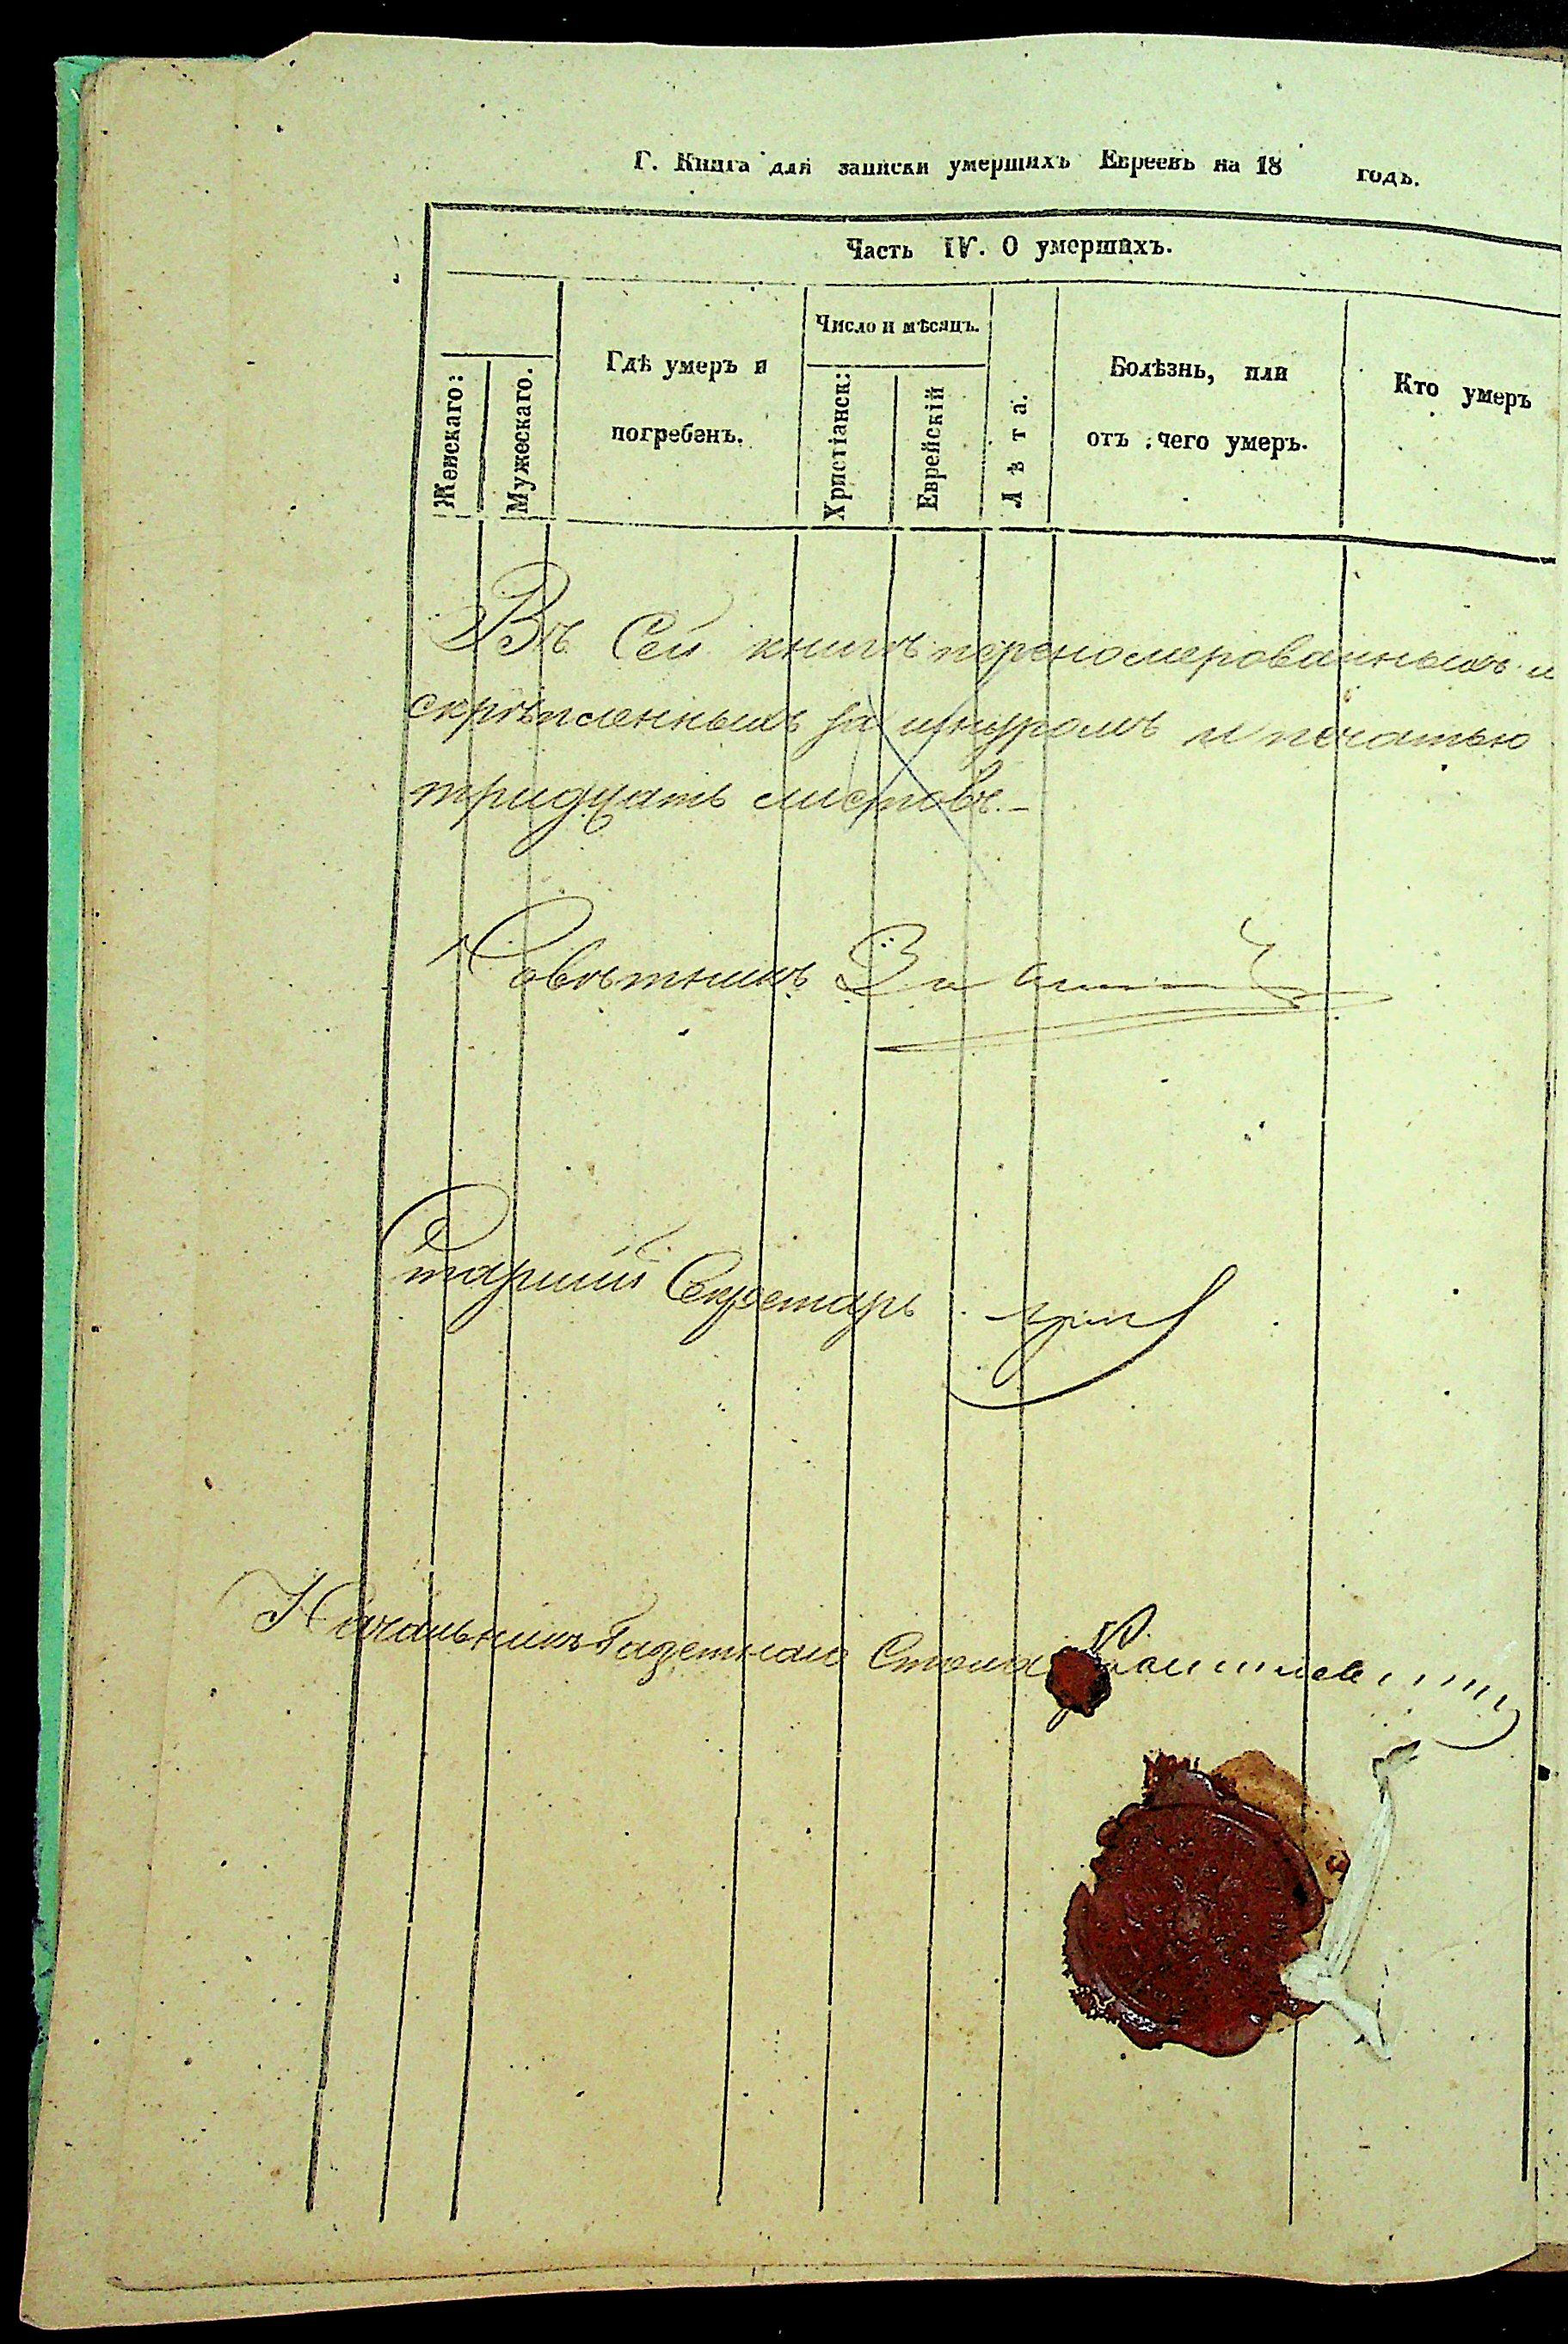 Г. Книга для записки умершихъ Евреевъ на 18 годъ.
Часть IV. О умершихъ.
Женскаго:
Мужескаго.
Гдѣ умеръ и
погребенъ.
Число и мѣсяцъ.
Христіанск:
Еврейскій
Лѣта.
Болѣзнь, или
отъ чего умеръ.
Кто умеръ
Въ сей книгѣ переномерованныхъ и
скрѣпленныхъ за шнуромъ и печатью
тридцать листовъ.-
Совѣтникъ
Старшій Секретарь
Начальникъ Газетнаго Стола